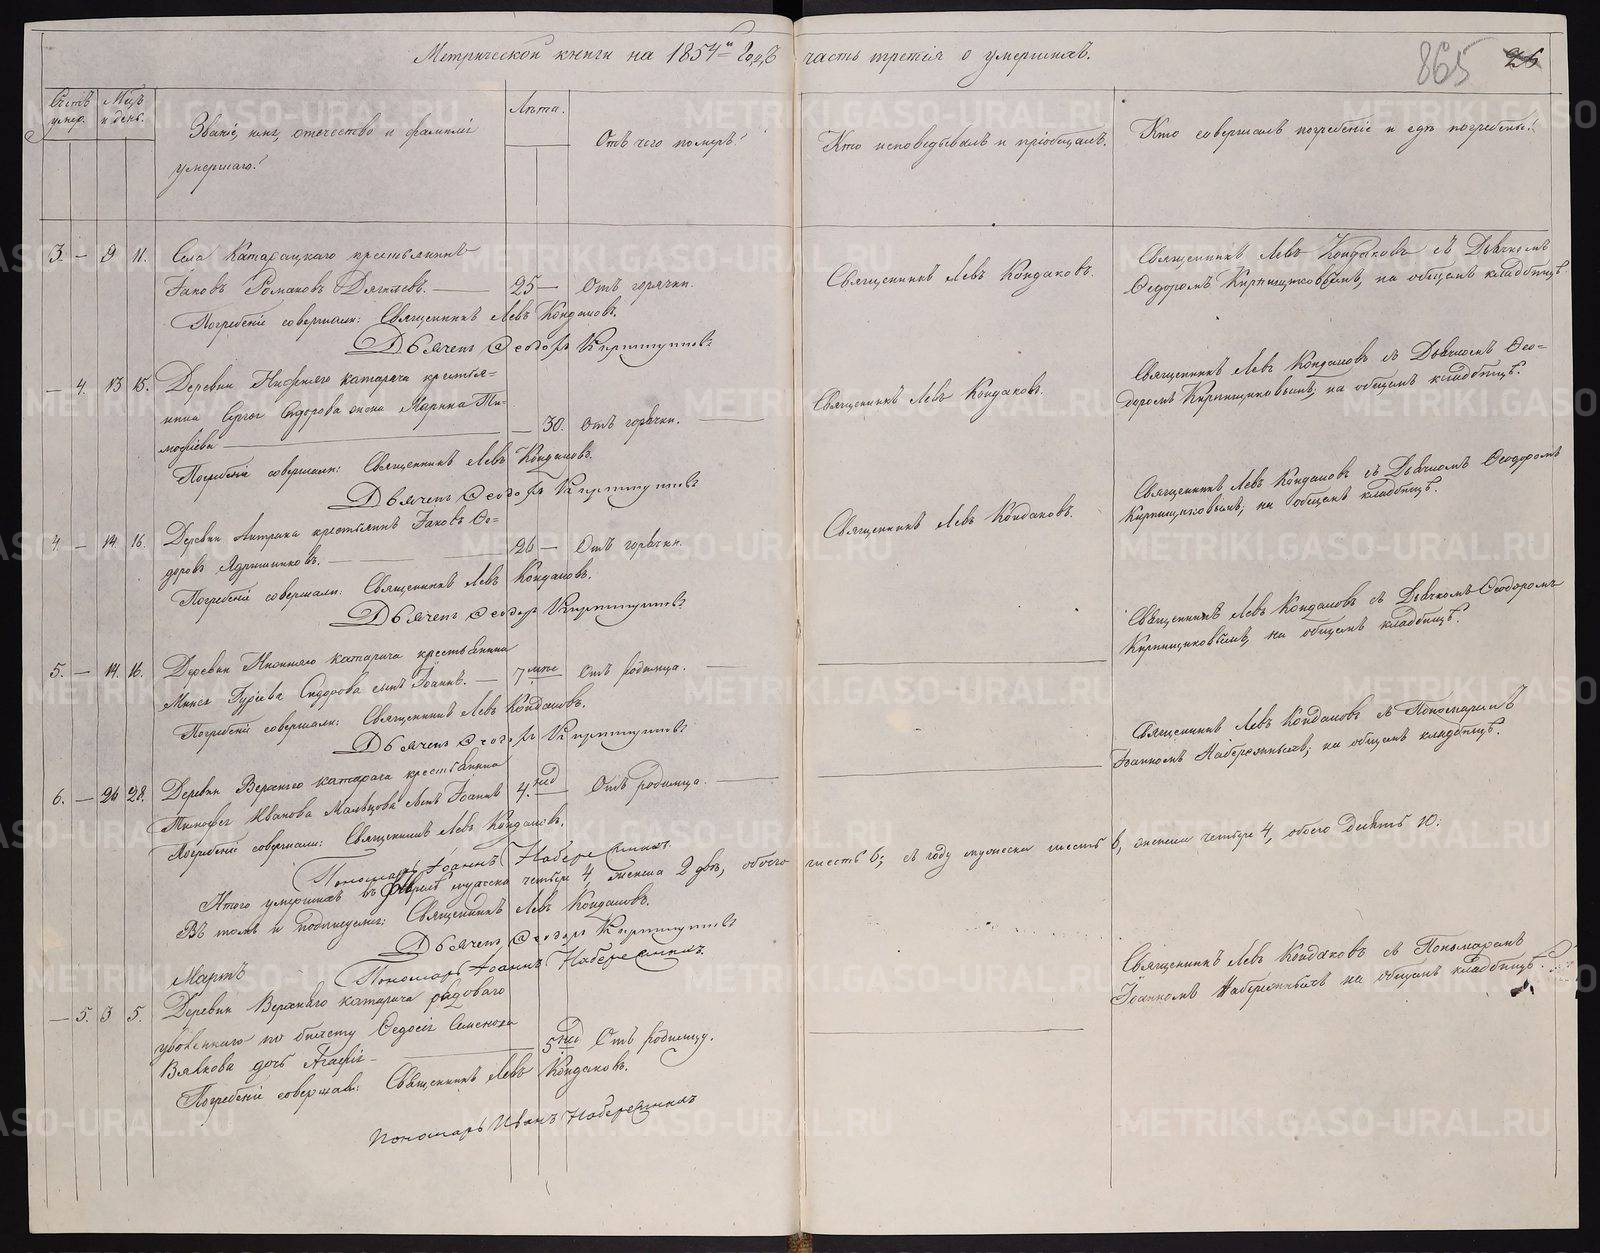 Метрической книги на 1854й Годъ часть третія о умершихъ.
865
Счетъ умер.
Мцъ и день.
Званіе, имя, отечество и фамилія
умершаго?
Лѣта.
Отъ чего померъ?
Кто исповѣдывалъ и пріобщалъ.
Кто совершалъ погребеніе и гдѣ погребены?
3. — 9 11. Села Катарацкаго крестьянинъ
Іаковъ Романовъ Дягилевъ. — 25 — Отъ горячки.
Священникъ Левъ Кондаковъ.
Священникъ Левъ Кондаковъ съ Дьячкомъ
Ѳедоромъ Кирпищиковымъ, на общемъ кладбищѣ.
Погребеніе совершали: Священникъ Левъ Кондаковъ.
Дьячекъ Ѳеодоръ Кирпищиковъ
— 4. 13 15. Деревни Нижняго Катарача крестья-
нина Сергѣя Сидорова жена Марина Ти-
мофіева — 30. Отъ горячки.
Священникъ Левъ Кондаковъ.
Священникъ Левъ Кондаковъ съ Дьячкомъ Ѳео-
доромъ Кирпищиковымъ, на общемъ кладбищѣ.
Погребеніе совершали: Священникъ Левъ Кондаковъ.
Дьячекъ Ѳеодоръ Кирпищиковъ
4. — 14. 16. Деревни крестьянинъ Іаковъ Ѳе-
доровъ Ядрышниковъ. — 26 — Отъ горячки.
Священникъ Левъ Кондаковъ.
Священникъ Левъ Кондаковъ съ Дьячкомъ Ѳеодоромъ
Кирпищиковымъ, на общемъ кладбищѣ.
Погребеніе совершали: Священникъ Левъ Кондаковъ.
Дьячекъ Ѳеодоръ Кирпищиковъ
5. — 14. 16. Деревни Нижняго Катарача крестьянина
Сидорова сынъ Іоаннъ. — 7 Отъ родимца.
Священникъ Левъ Кондаковъ съ Дьячкомъ Ѳеодоромъ
Кирпищиковымъ, на общемъ кладбищѣ.
Погребеніе совершали: Священникъ Левъ Кондаковъ.
Дьячекъ Ѳеодоръ Кирпищиковъ
6. — 26 28. Деревни Верхняго Катарача крестьянина
Тимофея Иванова Мальцова сынъ Іоаннъ 4. нед Отъ родимца.
Священникъ Левъ Кондаковъ съ Пономаремъ
Іоанномъ Набережныхъ, на общемъ кладбищѣ.
Погребеніе совершали: Священникъ Левъ Кондаковъ.
Пономарь Іоаннъ Набережныхъ.
Итого умершихъ въ Февралѣ мужеска четыре 4, женска 2 двѣ, обоего шесть 6; съ году мужеска шесть 6, женска четыре 4, обоего десять 10.
Въ томъ и подписуемся: Священникъ Левъ Кондаковъ.
Дьячекъ Ѳеодоръ Кирпищиковъ
Пономарь Іоаннъ Набережныхъ.
Мартъ
— 5. 3 5. Деревни Верхняго Катарача рядоваго
уволеннаго по билету Ѳедосія Семенова
Вялкова дочь Агафія — 5 нед Отъ родимцу.
Священникъ Левъ Кондаковъ съ Пономаремъ
Іоанномъ Набережныхъ на общемъ кладбищѣ.
Погребеніе совершали: Священникъ Левъ Кондаковъ.
Пономарь Иванъ Набережныхъ
METRIKI.GASO-URAL.RU